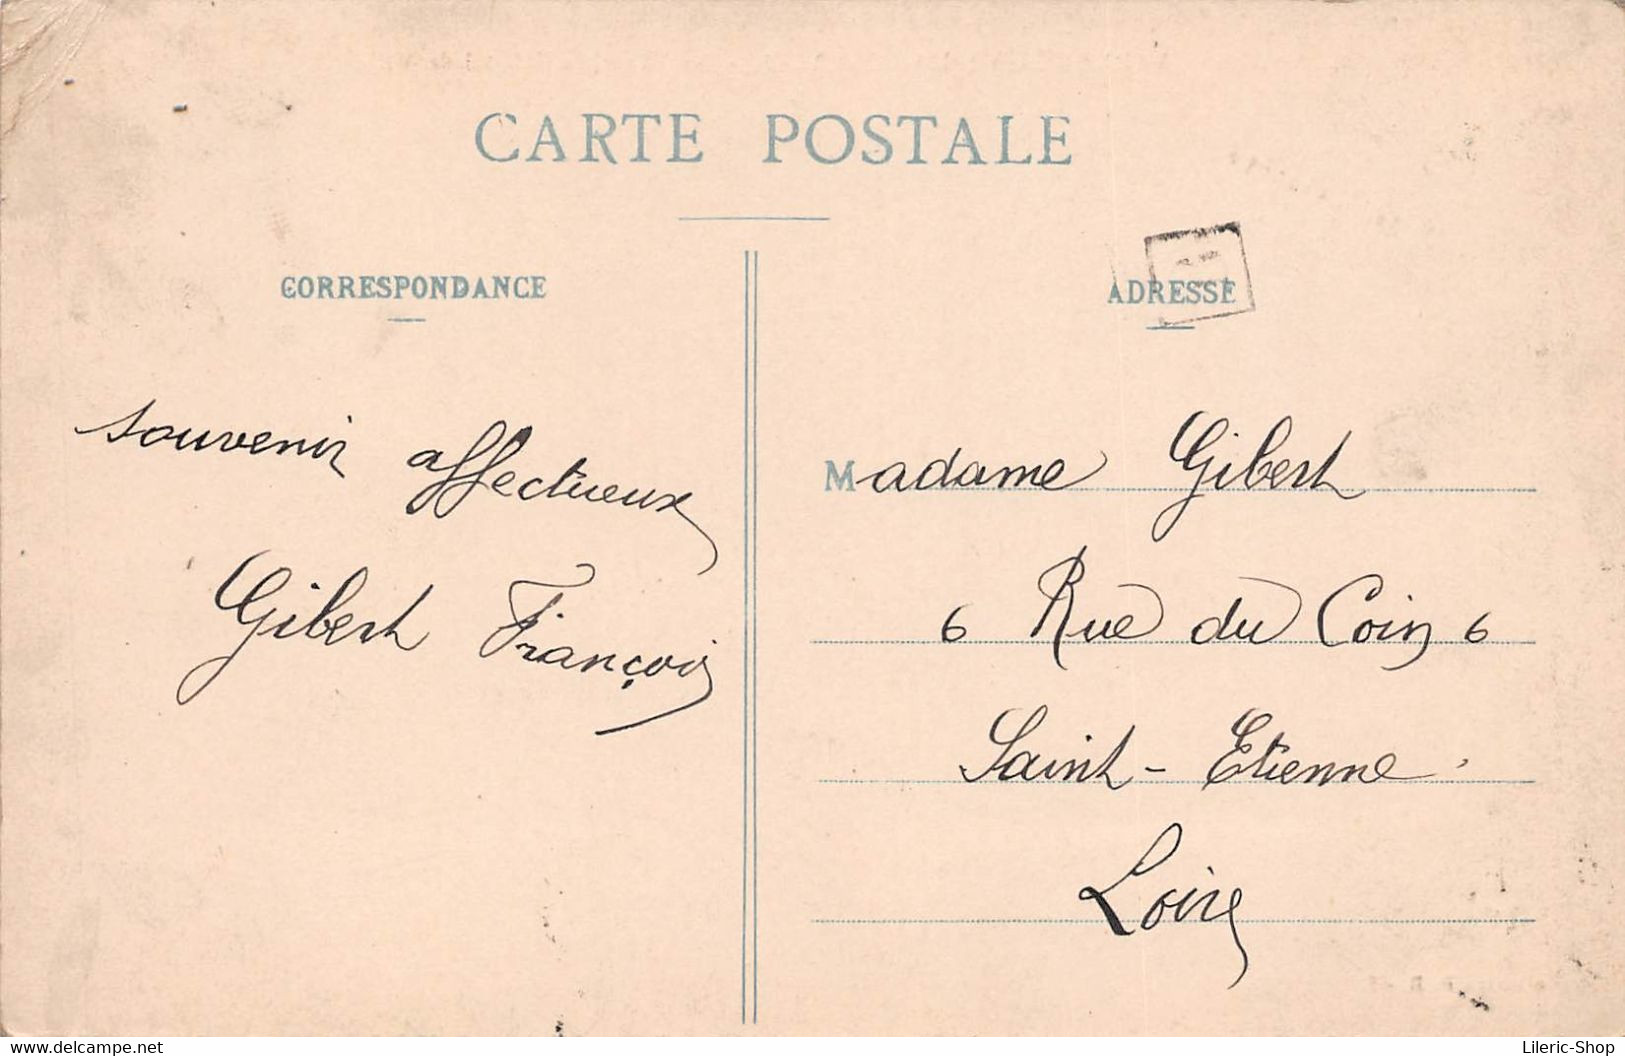 CARTE POSTALE
CORRESPONDANCE
ADRESSE
souvenir affectueux
Gibert François
Madame Gibert
6 Rue du Coin 6
Saint-Etienne.
Loire
www.delcampe.net
Lileric-Shop